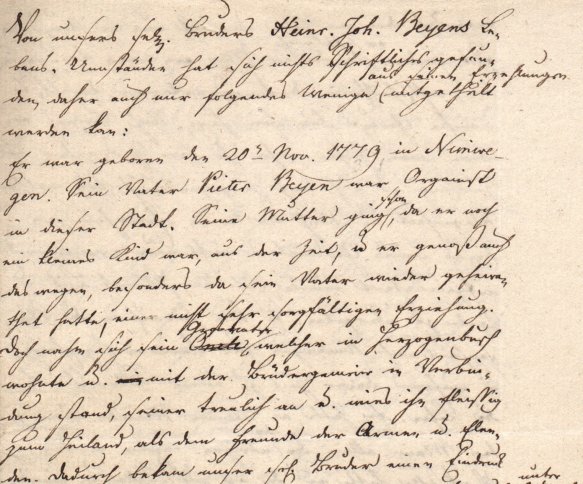 Von unsers sel. Bruders Heinr. Joh. Beyens Le-
bens-Umständen hat sich nichts Schriftliches gefun-
aus seinen Erzehlungen
den, daher auch nur folgendes Wenige mitgetheilt
werden kan:
Er war geboren den 20t Nov. 1779, in Nimwe-
gen. Sein Vater Pieter Beyen war Organist
in dieser Stadt. Seine Mutter ging schon, da er noch
ein kleines Kind war, aus der Zeit, u er genoß auch
deswegen, besonders da sein Vater wieder geheira-
thet hatte, einer nicht sehr sorgfältigen Erziehung.
Doch nahm sich sein Großvater, welcher in Herzogenbusch
wohnte u. mit der Brüdergemeine in Verbin-
dung stand, seiner treulich an u. wies ihn fleissig
zum Heiland, als dem Freunde der Armen u. Elen-
den. Dadurch bekam unser sel. Bruder einen Eindruk
unter